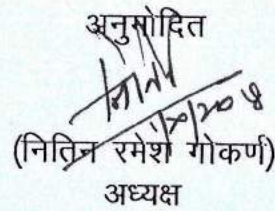 अनुमोदित
(नितिन रमेश गोकर्ण)
अध्यक्ष